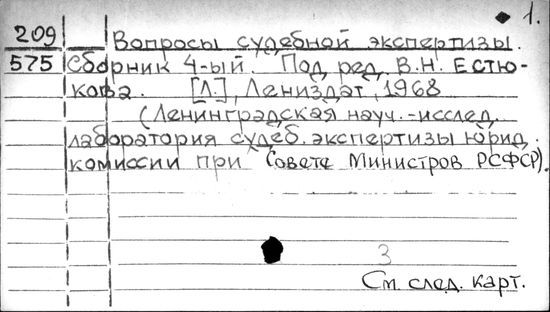 1.
209 Вопросы судебной экспертизы.
575 Сборник 4-ый. Под ред. В.Н. Естю-
кова. [Л.], Лениздат, 1968
(Ленинградская науч.-исслед.
лаборатория судеб. экспертизы юрид.
комиссии при Совете Министров РСФСР).
3
См. след. карт.